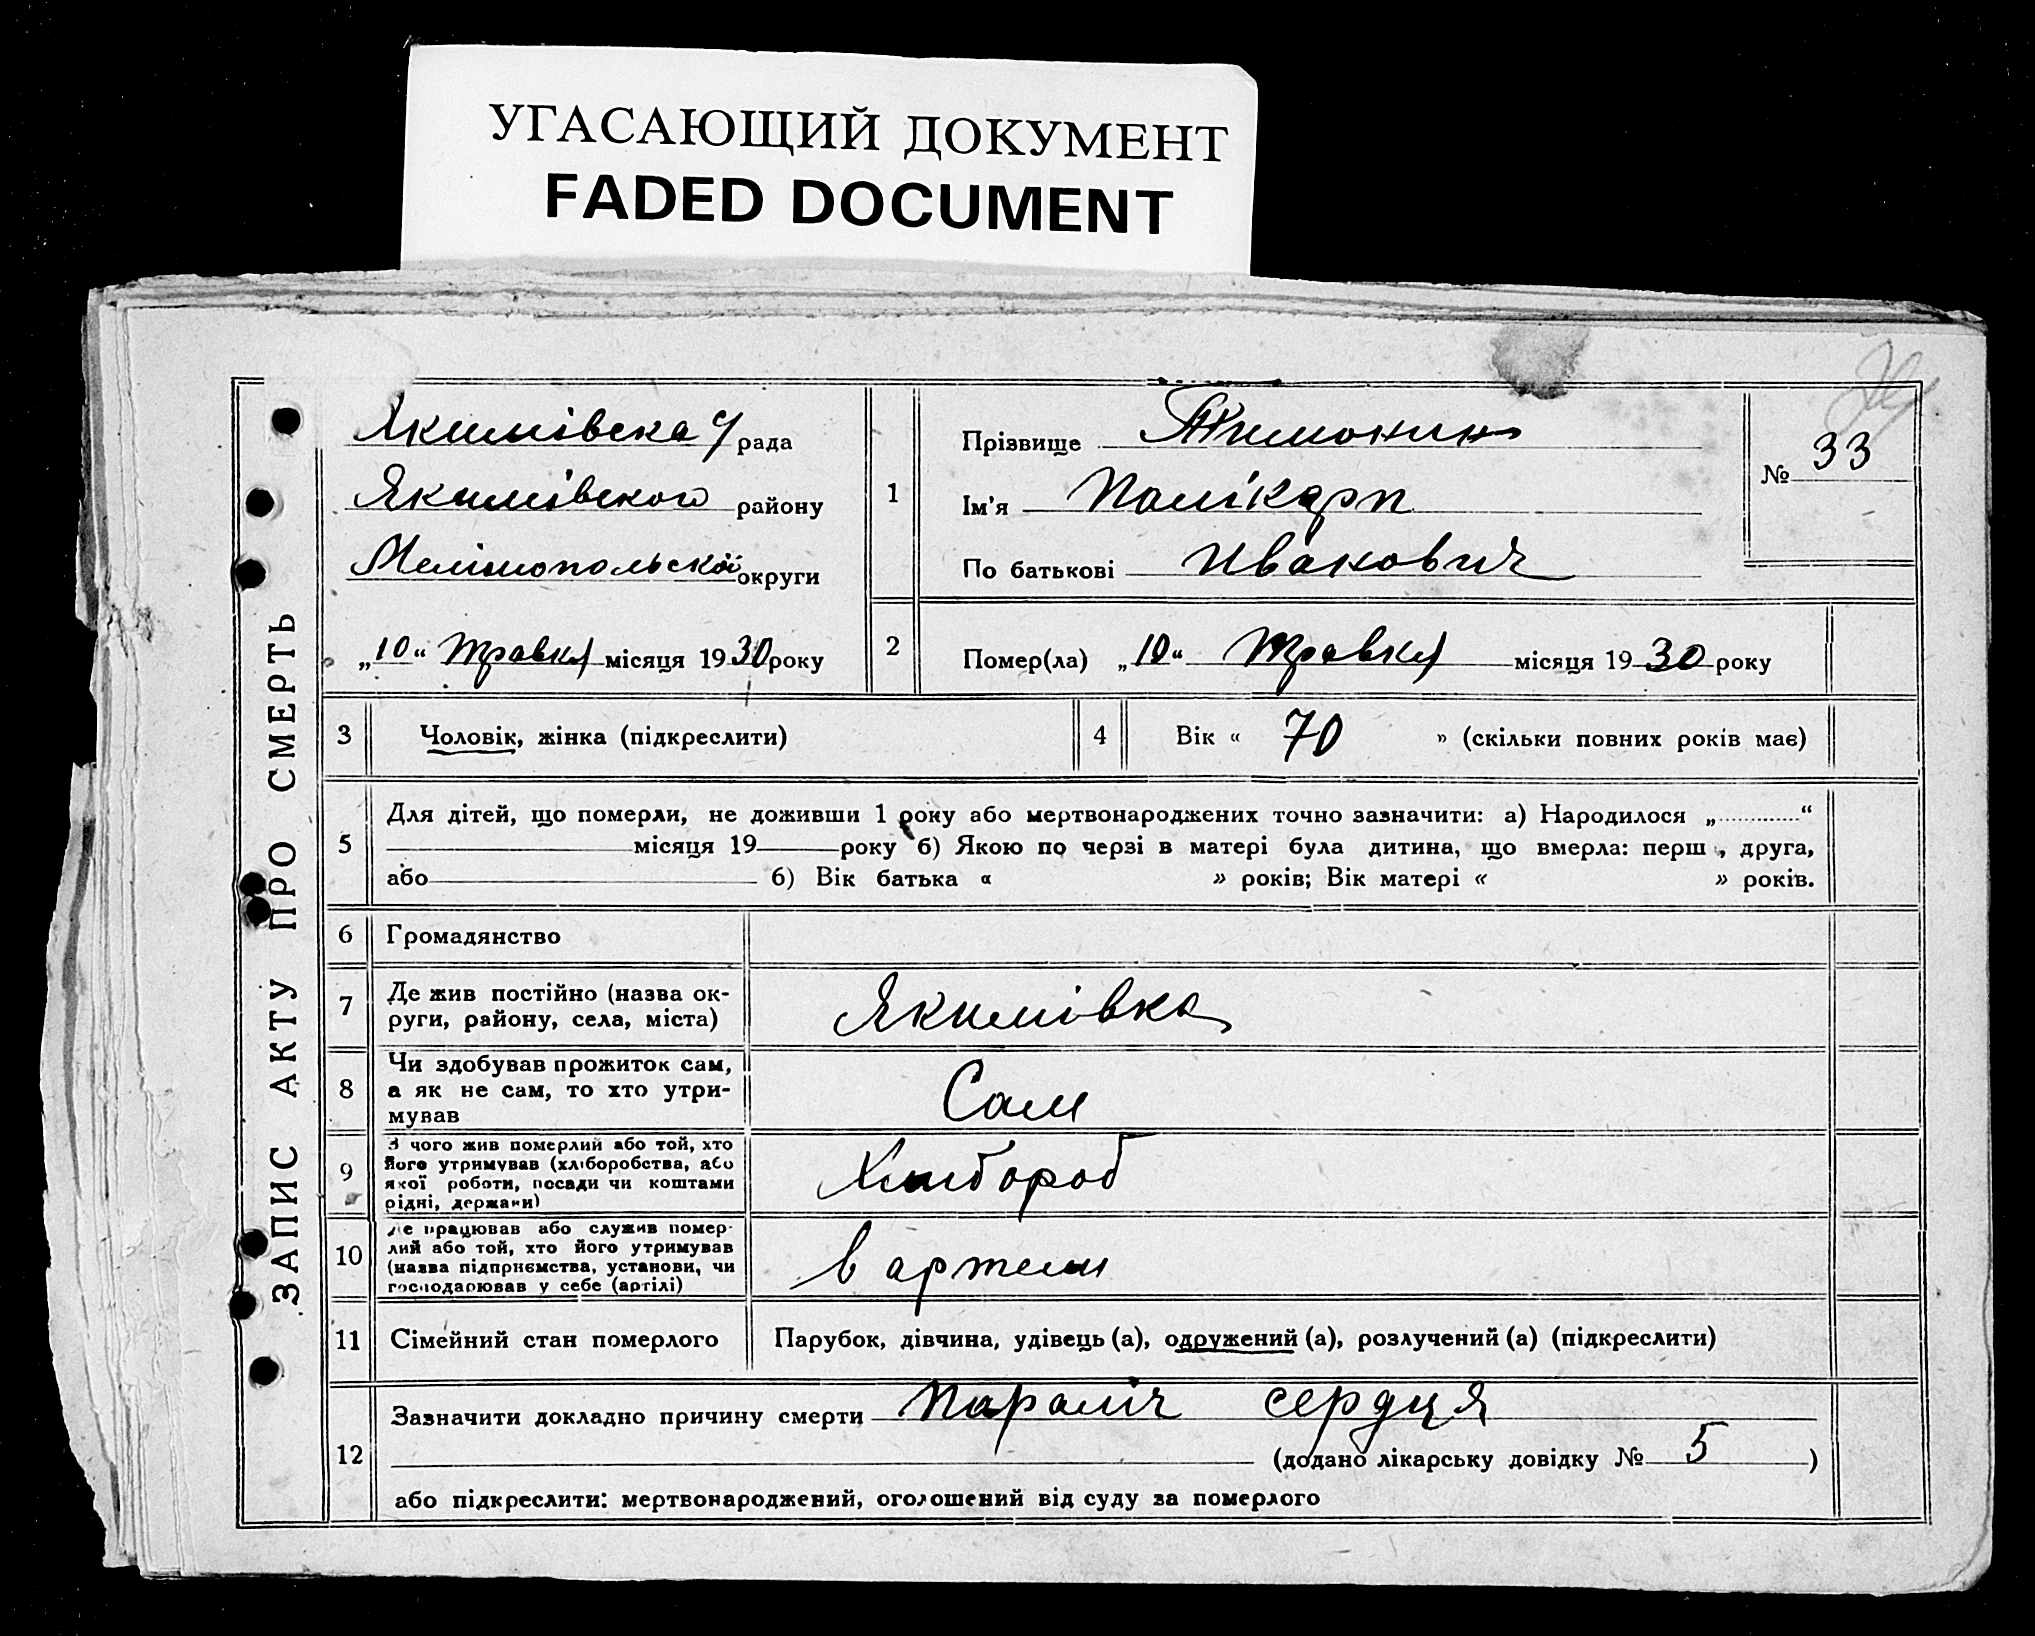 УГАСАЮЩИЙ ДОКУМЕНТ
FADED DOCUMENT
ЗАПИС АКТУ ПРО СМЕРТЬ
Якимівська рада
Якимівского району
Мелітопольскої округи
„10“ травня місяця 1930 року
1
Прізвище
Ім'я Полікарп
По батькові Иванович
№ 33
2
Помер(ла) „10“ травня місяця 1930 року
3
Чоловік, жінка (підкреслити)
4
Вік « 70 » (скільки повних років має)
5
Для дітей, що померли, не доживши 1 року або мертвонароджених точно зазначити: а) Народилося „ “
місяця 19 року б) Якою по черзі в матері була дитина, що вмерла: перш , друга,
або б) Вік батька « » років; Вік матері « » років.
6
Громадянство
7
Де жив постійно (назва ок-
руги, району, села, міста)
Якимівка
8
Чи здобував прожиток сам,
а як не сам, то хто утри-
мував
Сам
9
З чого жив померлий або той, хто
його утримував (хліборобства, або
якої роботи, посади чи коштами
рідні, держави)
Хлибороб
10
Де працював або служив помер-
лий або той, хто його утримував
(назва підприємства, установи, чи
господарював у себе (артілі)
в артели
11
Сімейний стан померлого
Парубок, дівчина, удівець (а), одружений (а), розлучений (а) (підкреслити)
12
Зазначити докладно причину смерти параліч сердця
(додано лікарську довідку № 5 )
або підкреслити: мертвонароджений, оголошений від суду за померлого